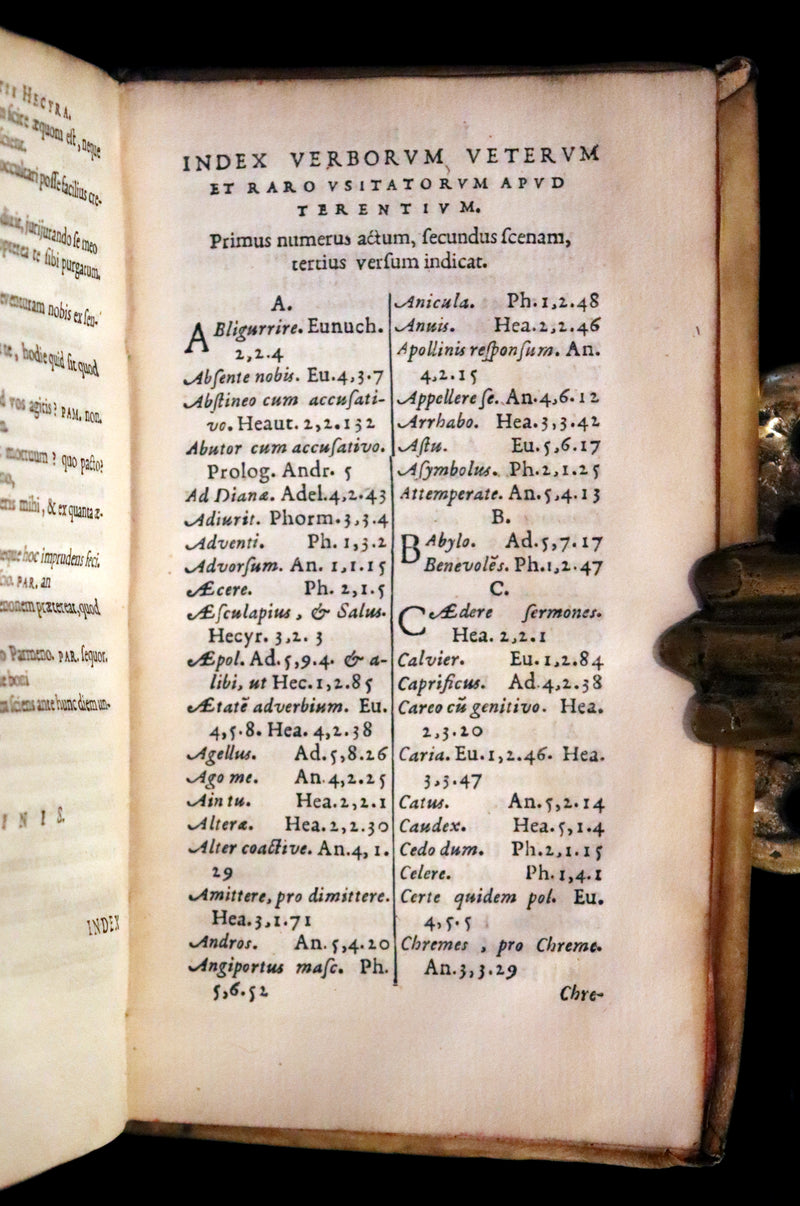 HECYRA.
æquom est, neque
posse facilius cre-
jurijurando se meo
te sibi purgatum,
nobis ex sen-
hodie quid sit quod
vos agitis? PAM. non.
mortuum? quo pacto?
mihi, & ex quanta æ-
hoc imprudens feci.
PAR. an
prætereat, quod
Parmeno. PAR. sequor.
ante hunc diem un-
INDEX
INDEX VERBORVM VETERVM
ET RARO VSITATORVM APVD
TERENTIVM.
Primus numerus actum, secundus scenam,
tertius versum indicat.
A.
ABligurrire. Eunuch.
2,2.4
Absente nobis. Eu.4,3.7
Abstineo cum accusati-
vo. Heaut. 2,2.132
Abutor cum accusativo.
Prolog. Andr. 5
Ad Dianæ. Adel.4,2.43
Adiurit. Phorm.3,3.4
Adventi. Ph. 1,3.2
Advorsum. An. 1,1.15
Æcere. Ph. 2,1.5
Æsculapius, & Salus.
Hecyr. 3,2. 3
Æpol. Ad.5,9.4. & a-
libi, ut Hec.1,2.85
Ætatē adverbium. Eu.
4,5.8. Hea. 4,2.38
Agellus. Ad.5,8.26
Ago me. An.4,2.25
Ain tu. Hea.2,2.1
Alteræ. Hea.2,2.30
Alter coactive. An.4, 1.
29
Amittere, pro dimittere.
Hea.3,1.71
Andros. An.5,4.20
Angiportus masc. Ph.
5,6.52
Anicula. Ph.1,2.48
Anuis. Hea.2,2.46
Apollinis responsum. An.
4,2.15
Appellere se. An.4,6.12
Arrhabo. Hea.3,3.42
Astu. Eu.5,6.17
Asymbolus. Ph.2,1.25
Attemperate. An.5,4.13
B.
BAbylo. Ad.5,7.17
Benevolēs. Ph.1,2.47
C.
CÆdere sermones.
Hea. 2,2.1
Calvier. Eu.1,2.84
Caprificus. Ad.4,2.38
Careo cū genitivo. Hea.
2,3.20
Caria. Eu.1,2.46. Hea.
3,3.47
Catus. An.5,2.14
Caudex. Hea.5,1.4
Cedo dum. Ph.2,1.15
Celere. Ph.1,4.1
Certe quidem pol. Eu.
4,5.5
Chremes, pro Chreme.
An.3,3.29
Chre-